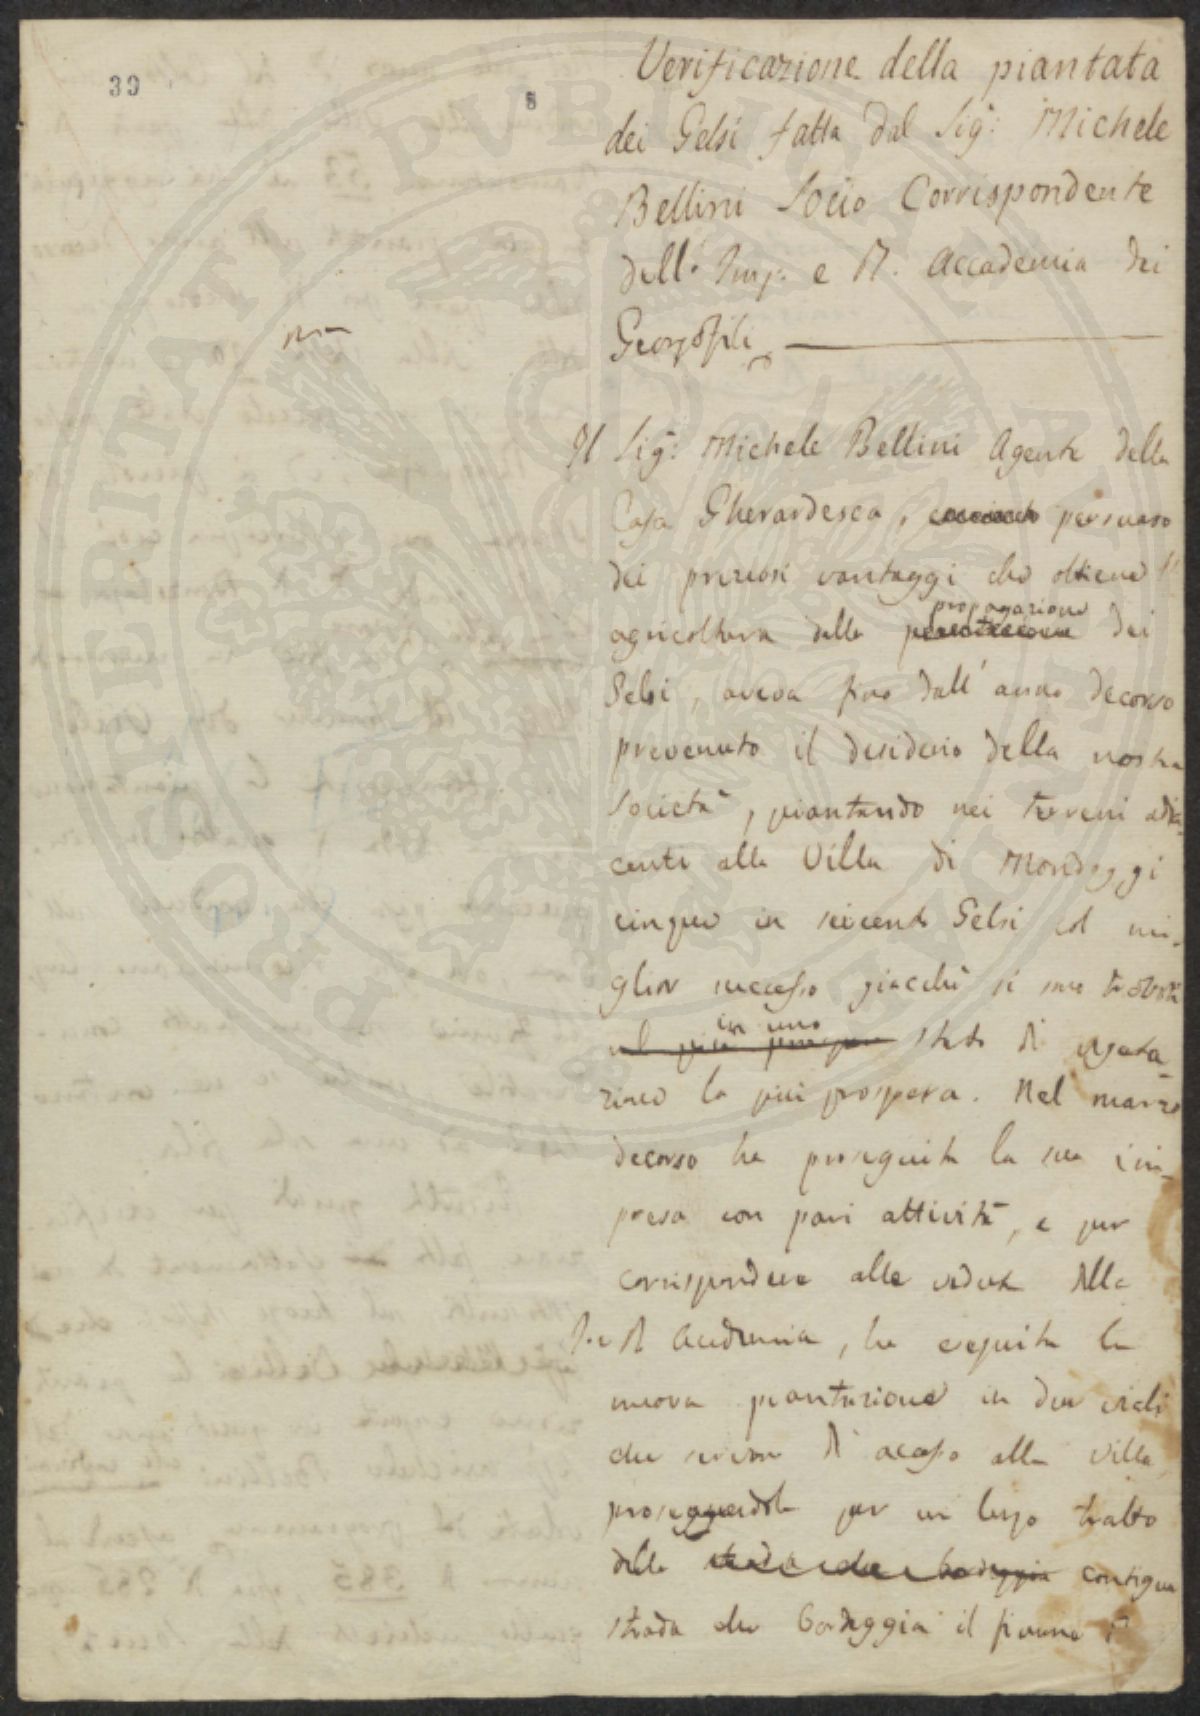 39
8
Verificazione della piantata
dei Gelsi fatta dal Sig.r Michele
Bellini Socio Corrispondente
dell'Imp. e R. Accademia dei
Georgofili
Il Sig.r Michele Bellini Agente della
Casa Gherardesca, persuaso
dei preziosi vantaggi che ottiene l'
agricoltura dalla propagazione dei
Gelsi, aveva fino dall'anno decorso
prevenuto il desiderio della nostra
Società, piantando nei terreni adia-
centi alla Villa di Mondeggi
cinque in seicento Gelsi col mi-
glior successo giacchè si
in uno stato di vegeta-
zione la più prospera. Nel marzo
decorso ha proseguita la sua im-
presa con pari attività, e per
corrispondere alle vedute della
I. e R. Accademia, ha eseguita la
nuova piantazione in due viali
che servon di accesso alla Villa,
per un lungo tratto
della strada che bordeggia contigua
strada che bordeggia il fiume
PROSPERITATI PUBLICAE AUGENDAE